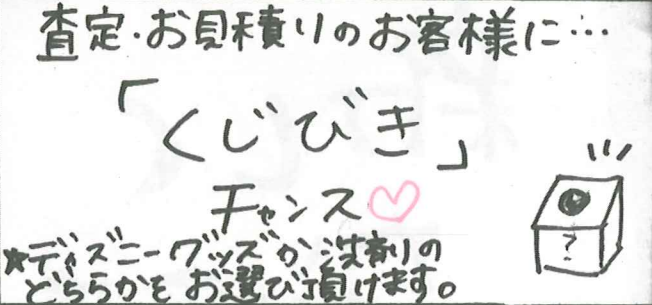 査定・お見積りのお客様に…
「くじびき」
チャンス♡
?
★ディズニーグッズか洗剤の
どちらかをお選び頂けます。